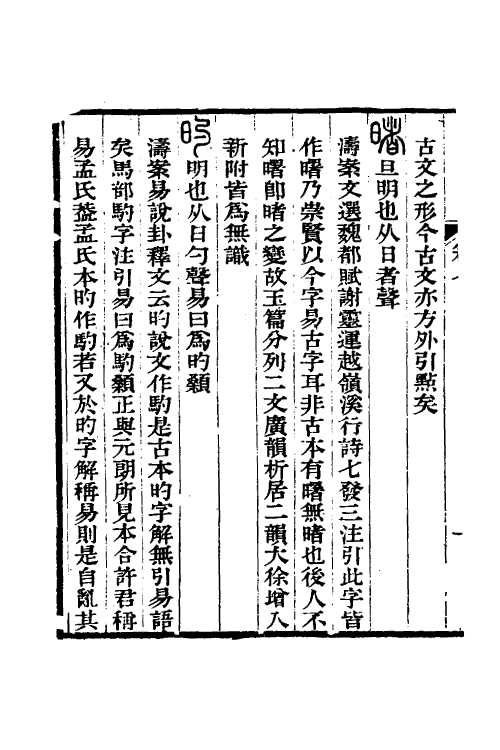 古文之形今古文亦方外引點矣
睹旦明也从日者聲
濤案文選魏都賦謝靈運越嶺溪行詩七發三注引此字皆
作曙乃崇賢以今字易古字耳非古本有曙無睹也後人不
知曙卽睹之變故玉篇分列二文廣韻析居二韻大徐增入
新附皆爲無識
旳明也从日勺聲易曰爲旳顙
濤案易說卦釋文云旳說文作駒是古本旳字解無引易語
矣馬部駒字注引易曰爲駒顙正與元朗所見本合許君稱
易孟氏蓋孟氏本旳作駒若又於旳字解稱易則是自亂其